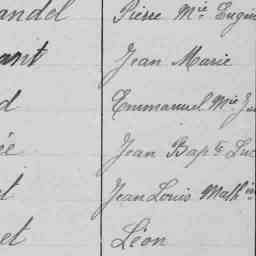 andel Pierre Mie Eugèn
ant Jean Marie
d Emmanuel Mie
ée Jean Bapte Luc
et Jean Louis Math
et Léon